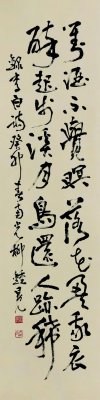 對酒不覺暝落花盈我衣
醉起步溪月鳥還人跡稀
錄李白詩癸卯春